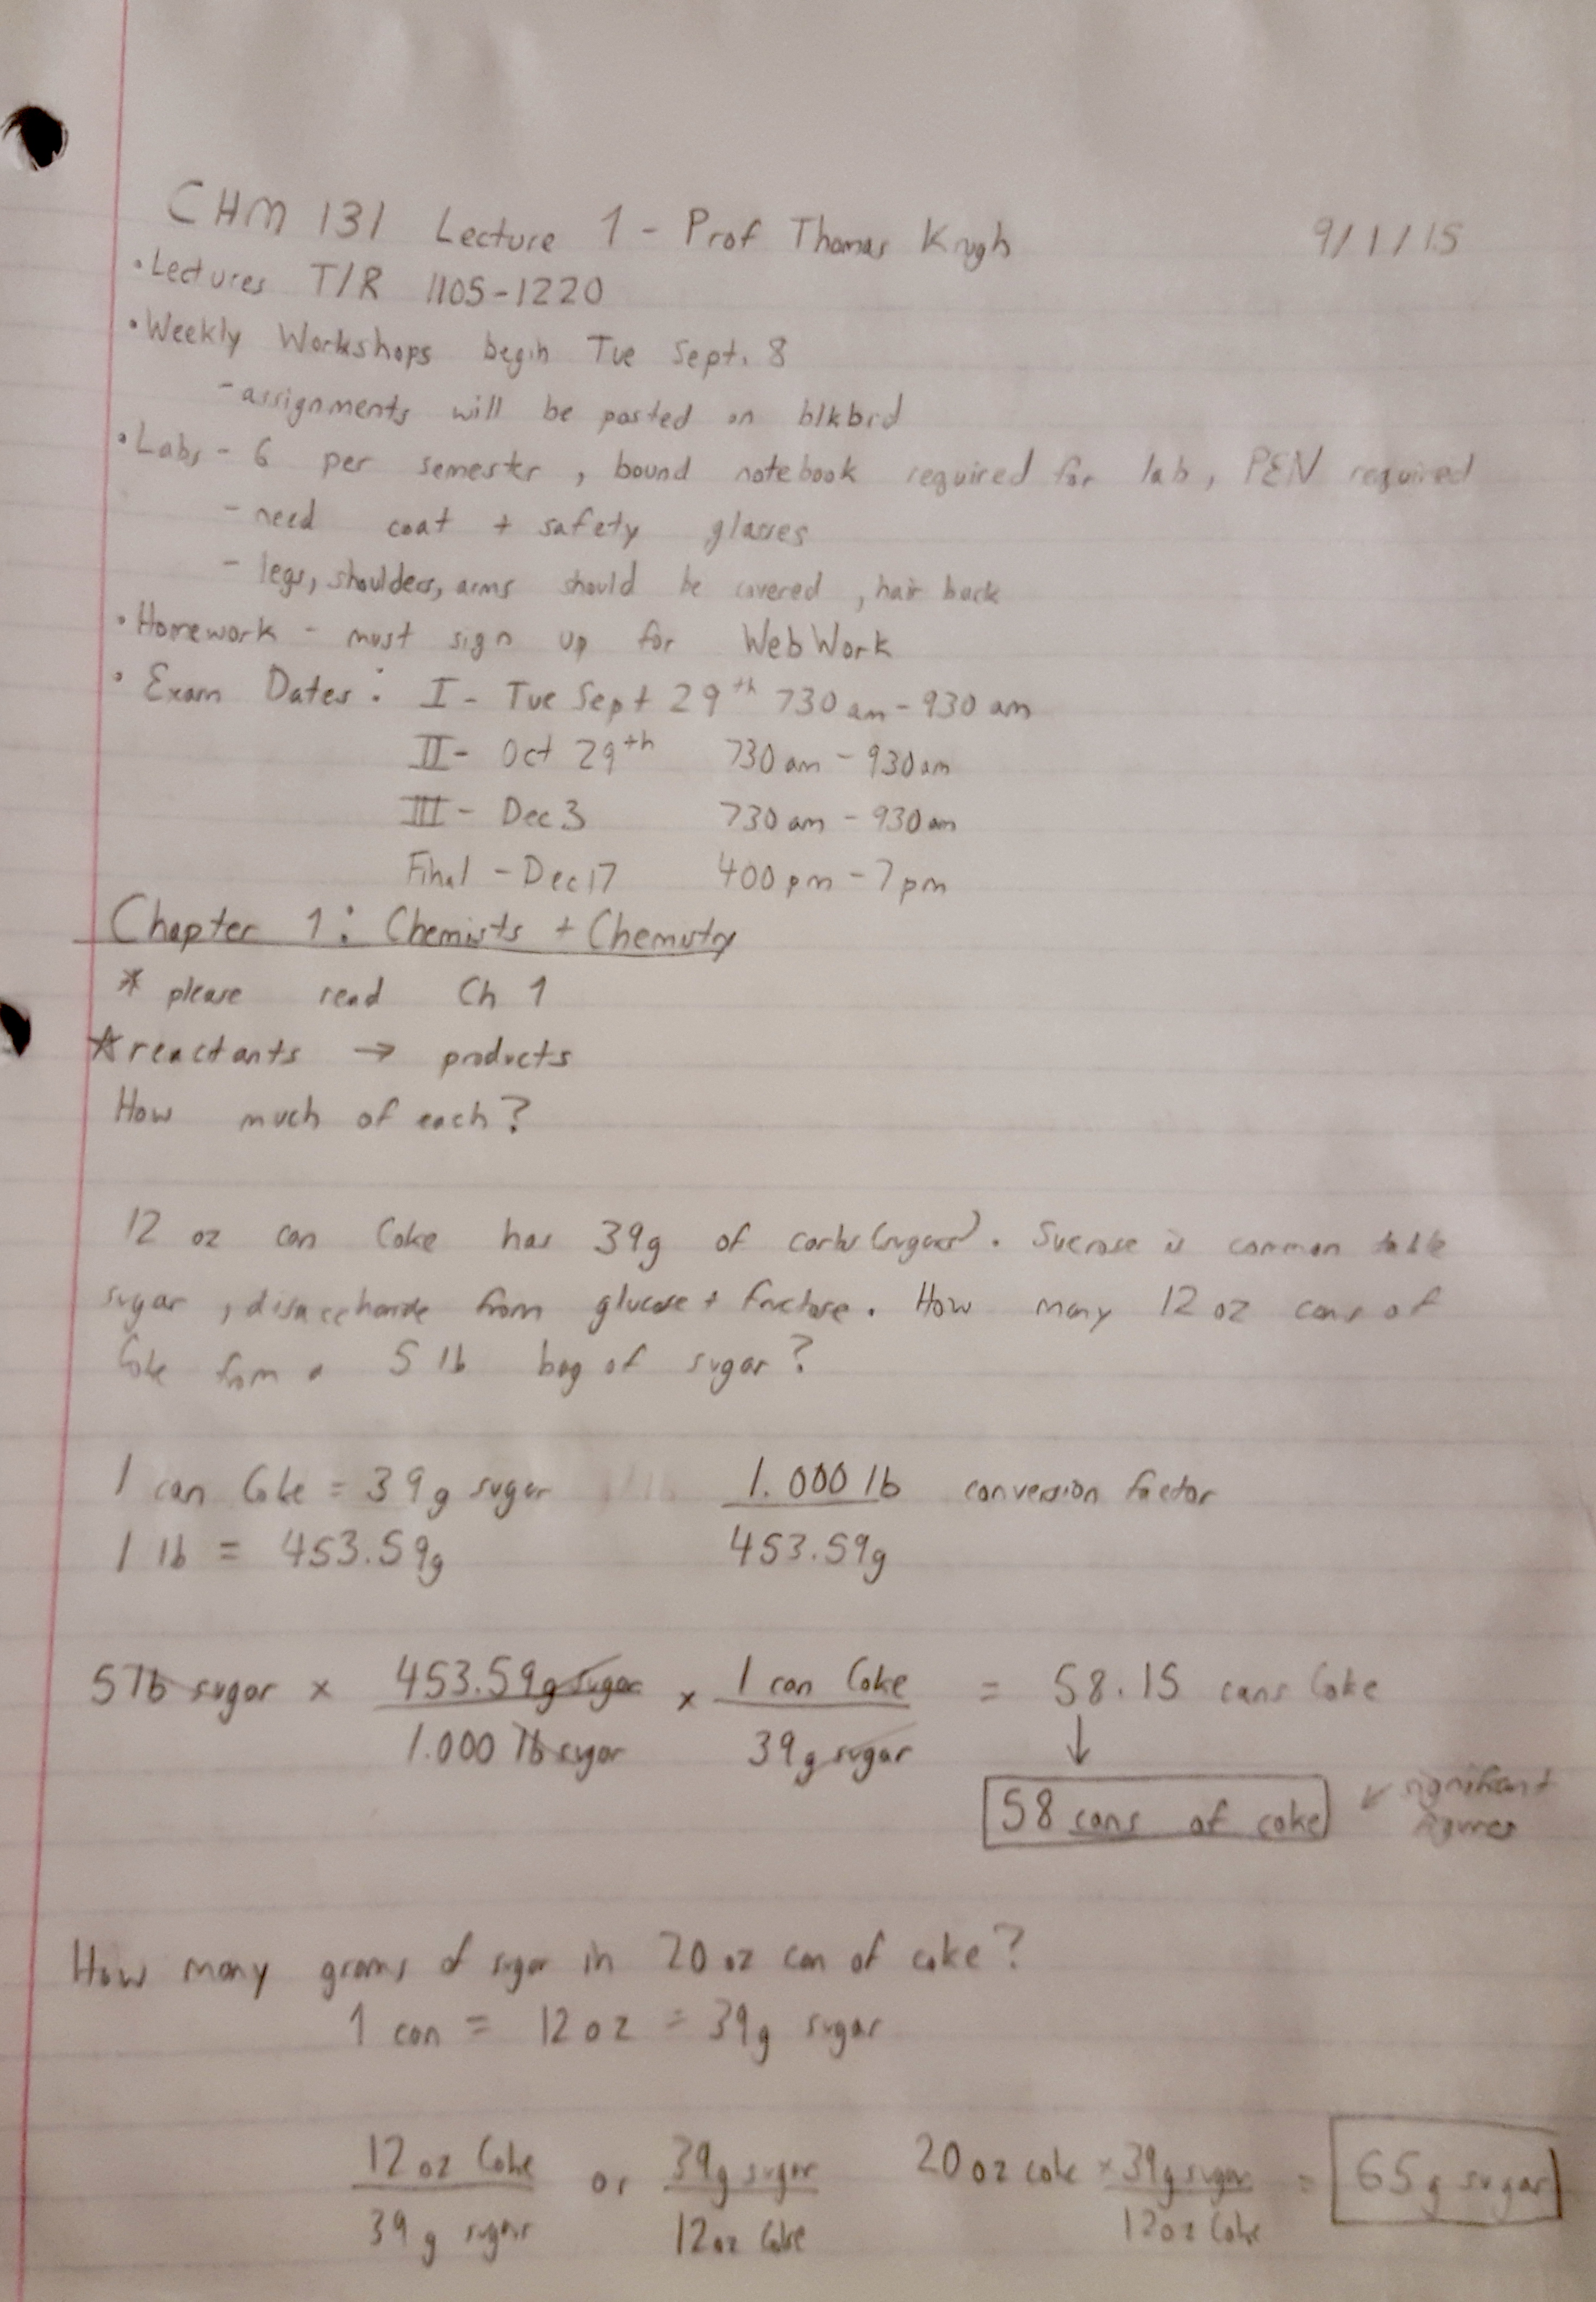 CHM 131 Lecture 1 - Prof Thomas Krugh 9/1/15
• Lectures T/R 1105-1220
• Weekly Workshops begin Tue Sept. 8
- assignments will be posted on blkbrd
• Labs - 6 per semester, bound notebook required for lab, PEN required
- need coat + safety glasses
- legs, shoulders, arms should be covered, hair back
• Homework - must sign up for WebWork
• Exam Dates: I - Tue Sept 29th 730 am - 930 am
II - Oct 29th 730 am - 930 am
III - Dec 3 730 am - 930 am
Final - Dec 17 400 pm - 7 pm
Chapter 1: Chemists + Chemistry
* please read Ch 1
☆ reactants → products
How much of each?
12 oz can Coke has 39g of carbs (sugars). Sucrose is common table
sugar, disaccharide from glucose + fructose. How many 12 oz cans of
Coke from a 5 lb bag of sugar?
1 can Coke = 39g sugar 1.000 lb conversion factor
1 lb = 453.59g 453.59g
5 lb sugar x 453.59g sugar x 1 can Coke = 58.15 cans Coke
1.000 lb sugar 39g sugar ↓
58 cans of coke ↙ significant
figures
How many grams of sugar in 20 oz can of coke?
1 can = 12 oz = 39g sugar
12 oz Coke or 39g sugar 20 oz coke x 39g sugar = 65g sugar
39 g sugar 12 oz Coke 12 oz Coke